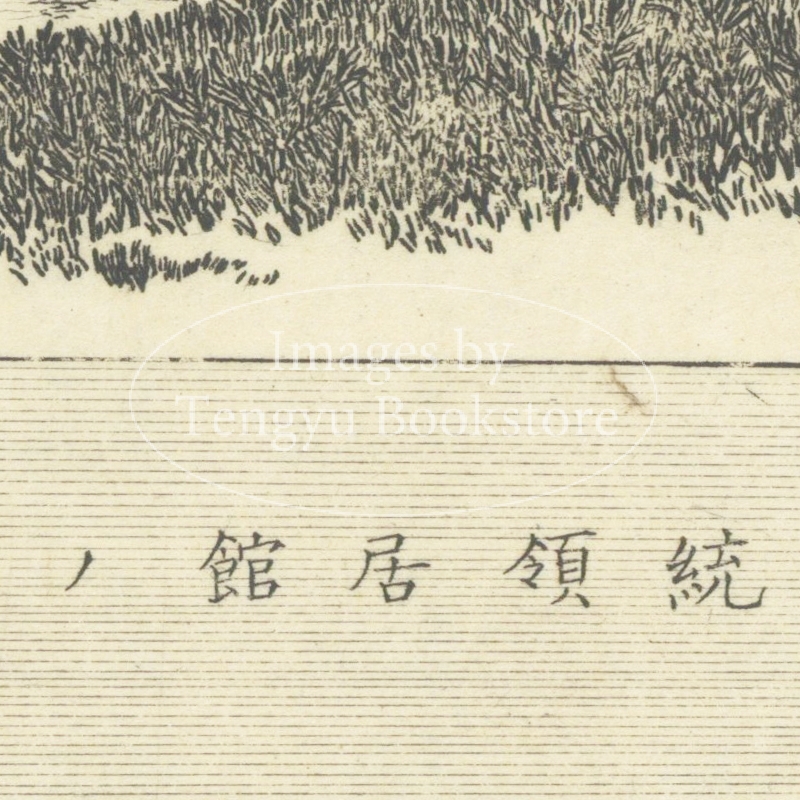 Images by
Tengyu Bookstore
統領居館ノ